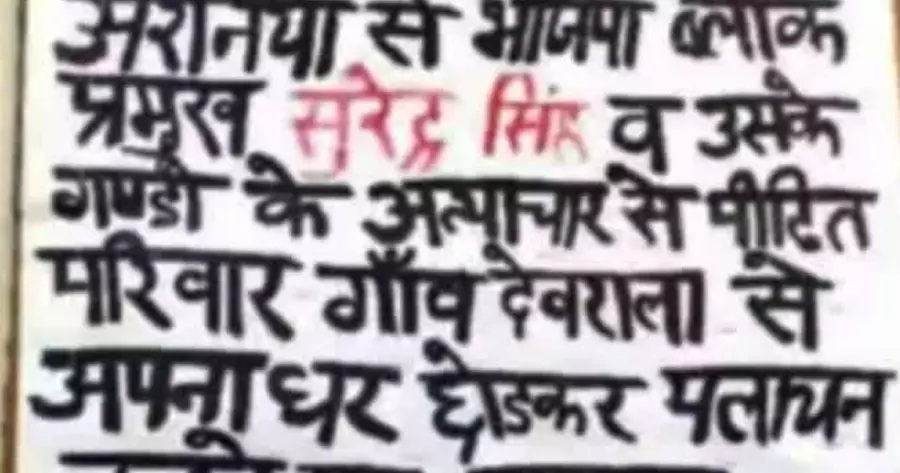 अरनिया से भाजपा ब्लाक
प्रमुख सुरेंद्र सिंह व उसके
गुण्डो के अत्याचार से पीड़ित
परिवार गाँव देवराला से
अपना घर छोडकर पलायन